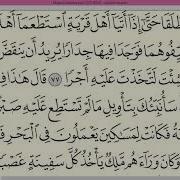 طَلَقَا حَتَّىٰٓ إِذَآ أَتَيَآ أَهْلَ قَرْيَةٍ ٱسْتَطْعَمَآ أَهْلَ
يِّفُوهُمَا فَوَجَدَا فِيهَا جِدَارًا يُرِيدُ أَن يَنقَضَّ
شِئْتَ لَتَّخَذْتَ عَلَيْهِ أَجْرًا ٧٧ قَالَ هَٰذَا فِ
سَأُنَبِّئُكَ بِتَأْوِيلِ مَا لَمْ تَسْتَطِع عَّلَيْهِ صَبْرًا
ةُ فَكَانَتْ لِمَسَٰكِينَ يَعْمَلُونَ فِي ٱلْبَحْرِ فَ
وَكَانَ وَرَآءَهُم مَّلِكٌ يَأْخُذُ كُلَّ سَفِينَةٍ غَصْبًا